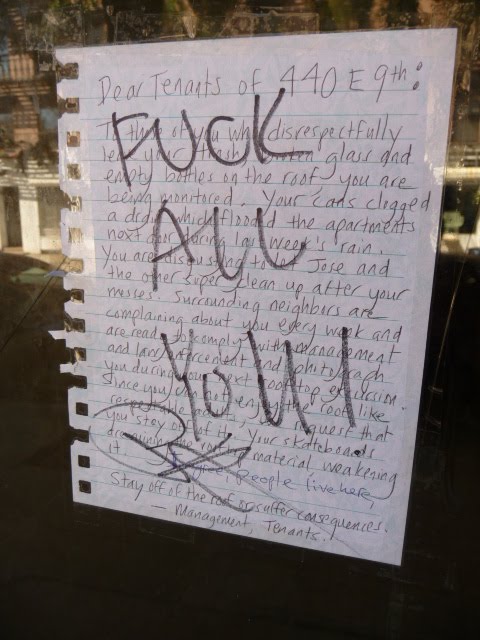 Dear Tenants of 440 E 9th:
To those of you who disrespectfully
leave your trash, broken glass and
empty bottles on the roof, you are
being monitored. Your cans clogged
a drain which flooded the apartments
next door during last week's rain.
You are disgusting to let Jose and
the other super clean up after your
messes. Surrounding neighbors are
complaining about you every week and
are ready to comply with management
and law enforcement and photograph
you during your next rooftop excursion.
Since you can not enjoy the roof like
respectful people, we request that
you stay off of it. Your skateboards
are the roofing material weakening
it. People live here,
Stay off of the roof or suffer consequences.
— Management, Tenants.
FUCK
ALL
YOU!